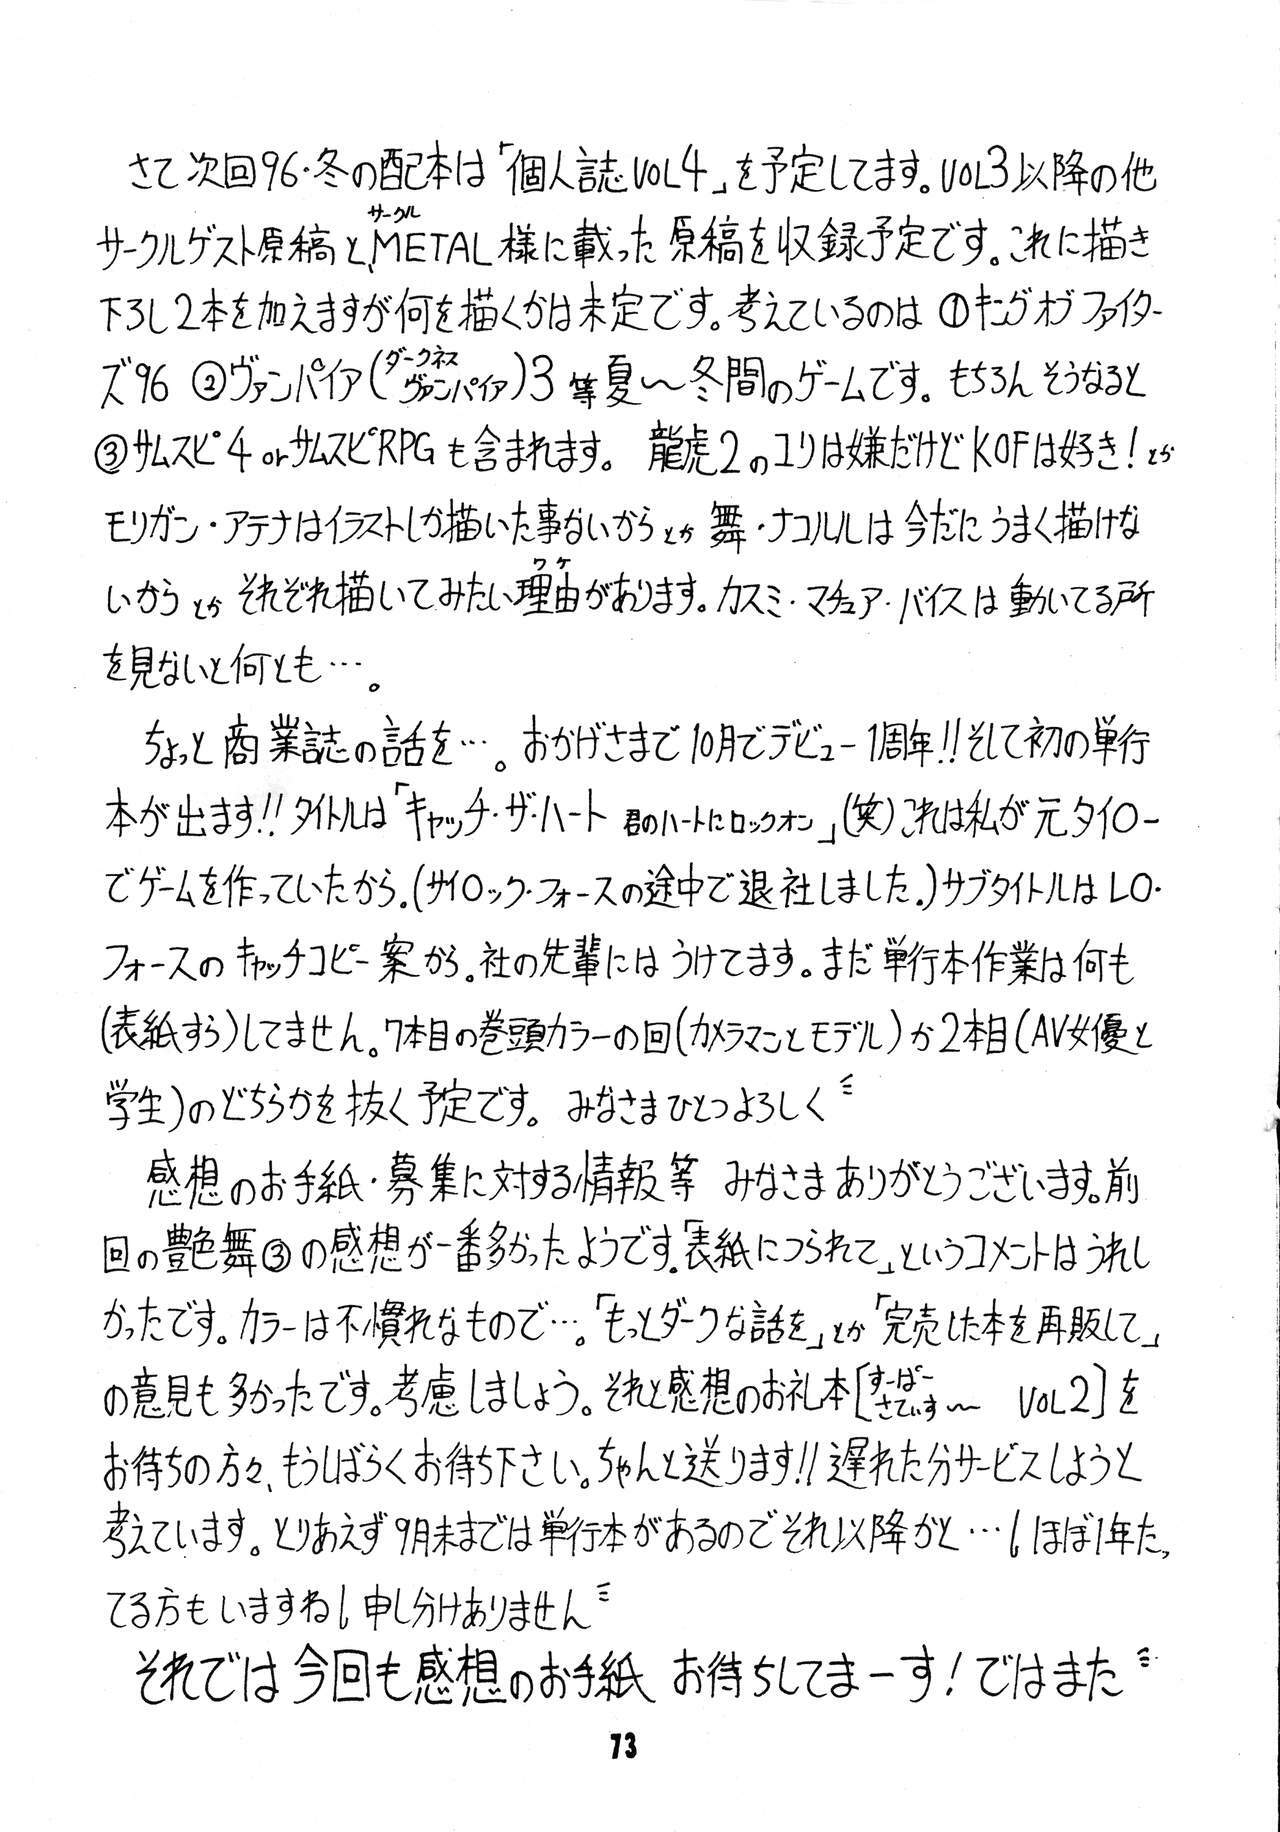 さて次回96・冬の配本は「個人誌VOL4」を予定してます。VOL3以降の他
サークルゲスト原稿と、METAL様に載った原稿を収録予定です。これに描き
サークル
下ろし2本を加えますが何を描くかは未定です。考えているのは ①キングオブファイター
ズ'96 ②ヴァンパイア(ダークネスヴァンパイア)3 等夏〜冬間のゲームです。もちろんそうなると
③サムスピ4orサムスピRPGも含まれます。 龍虎2のユリは嫌だけどKOFは好き!とか
モリガン・アテナはイラストしか描いた事ないからとか 舞・ナコルルは今だにうまく描けな
いからとか それぞれ描いてみたい理由があります。カスミ・マチュア・バイスは動いてる所
ワケ
を見ないと何とも…。
ちょっと商業誌の話を…。おかげさまで10月でデビュー1周年!!そして初の単行
本が出ます!!タイトルは「キャッチ・ザ・ハート 君のハートにロックオン」(笑)これは私が元タイトー
でゲームを作っていたから。(サイロック・フォースの途中で退社しました。)サブタイトルはLO・
フォースのキャッチコピー案から。社の先輩にはうけてます。まだ単行本作業は何も
(表紙すら)してません。7本目の巻頭カラーの回(カメラマンとモデル)か2本目(AV女優と
学生)のどちらかを抜く予定です。 みなさまひとつよろしく
感想のお手紙・募集に対する情報等 みなさまありがとうございます。前
回の艶舞③の感想が一番多かったようです。「表紙につられて」というコメントはうれし
かったです。カラーは不慣れなもので…。「もっとダークな話を」とか「完売した本を再販して」
の意見も多かったです。考慮しましょう。それと感想のお礼本[すーぱーさてぃすー〜 VOL2]を
お待ちの方々、もうしばらくお待ち下さい。ちゃんと送ります!!遅れた分サービスしようと
考えています。とりあえず9月末までは単行本があるのでそれ以降かと…。ほぼ1年たっ
てる方もいますね。申し分けありません
それでは今回も感想のお手紙 お待ちしてまーす!ではまた
73